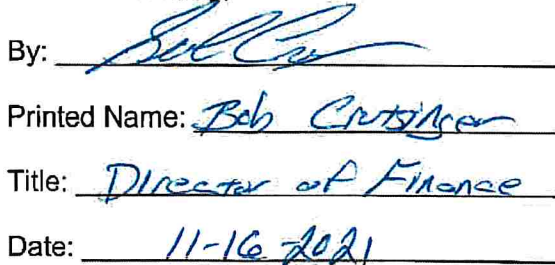 By:
Printed Name: Bob Crutsinger
Title: Director of Finance
Date: 11-16-2021